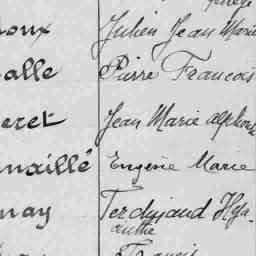 oux Julien Jean Marie
alle Pierre Francois
eret Jean Marie alphons
naillé Eugène Marie
nay Ferdinand Hya
cinthe
Francis